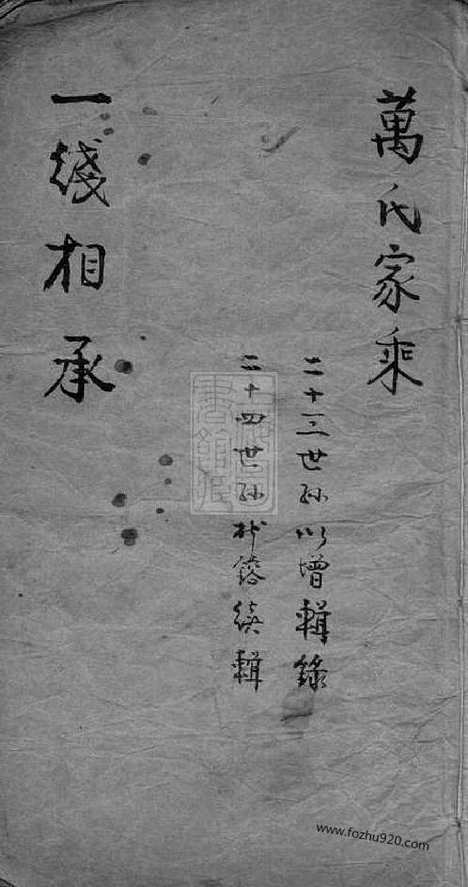 萬氏家乘
二十三世孫以增輯錄
二十四世孫 鎔續輯
一綫相承
www.fozhu920.com